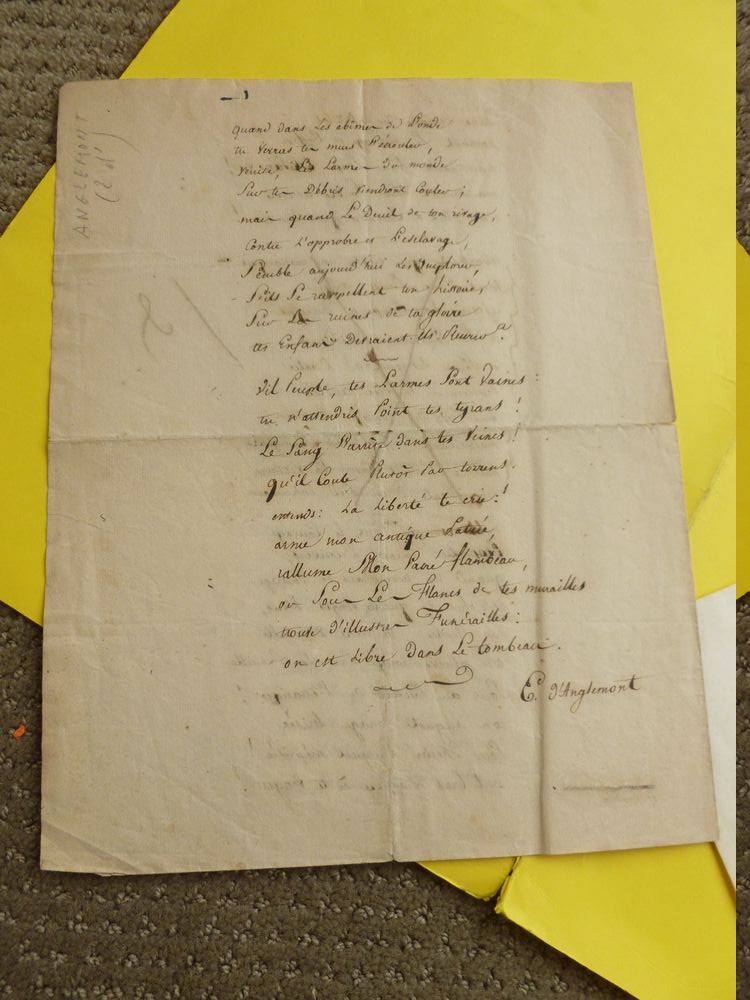 ANGLEMONT
(E d')
quand dans les abîmes de l'onde
tu verras tes murs s'écrouler,
venise, les larmes du monde
sur tes débris viendront couler ;
mais quand le deuil de ton rivage,
contre l'opprobre et l'esclavage,
semble aujourd'hui les implorer,
s'ils se rappellent ton histoire,
sur les ruines de ta gloire
tes enfans devraient-ils pleurer ?
vil peuple, tes larmes sont vaines :
tu n'attendris point tes tyrans !
Le sang dans tes veines !
qu'il coule plutôt par torrens.
entends : la liberté te crie !
arme mon antique patrie,
rallume mon sacré flambeau,
ou sous les flancs de tes murailles
trouve d'illustres funérailles :
on est libre dans le tombeau.
Ed. d'Anglemont